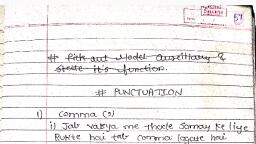 57
# Pick out Model Auxilliary &
State it's function.
# PUNCTUATION
1) Comma (,)
i) Jab vakya me thode Samay ke liye
Rukte hai tab comma lagate hai